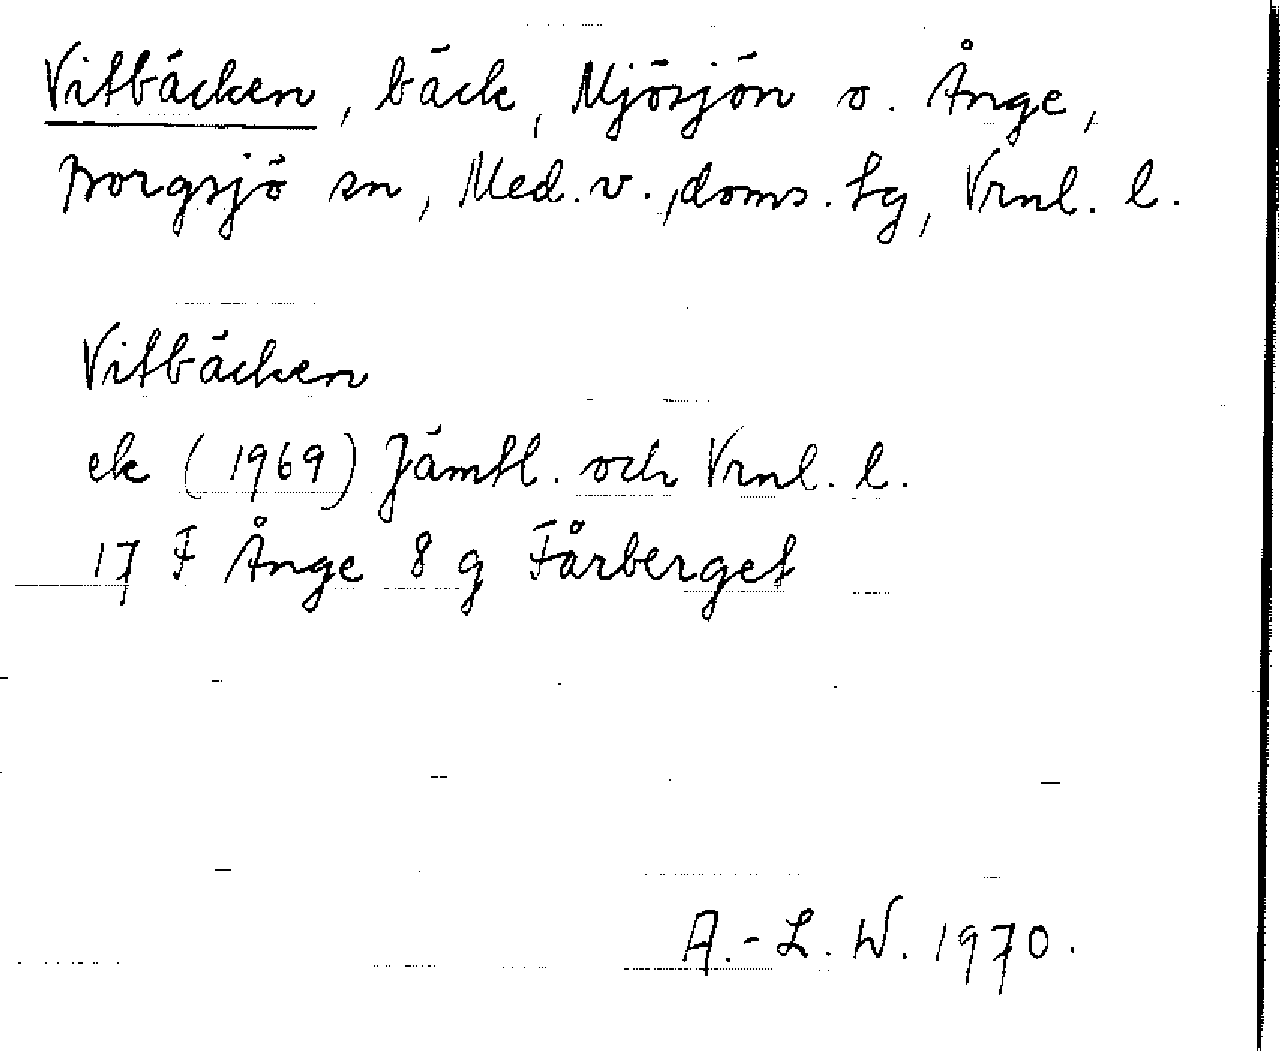 Vitbäcken, bäck, Mjösjön o. Ånge,
Borgsjö sn, Med. v., doms. hg, Vrnl. l.
Vitbäcken
ek (1969) Jämtl. och Vrnl. l.
17 F Ånge 8 g Fårberget
A.-L. W. 1970.